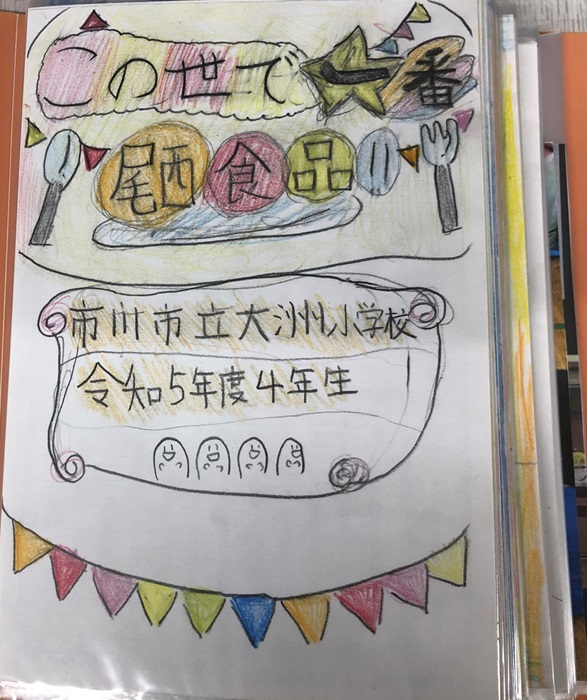 この世で一番
尾西食品
市川市立大洲小学校
令知5年度4年生